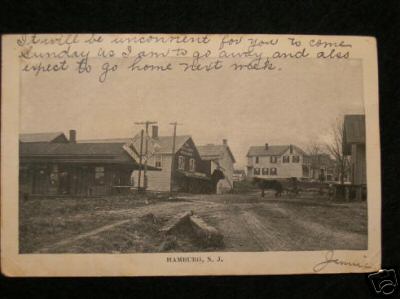 It will be unconvient for you to come
Sunday as I am to go away and also
expect to go home next week.
HAMBURG, N. J.
Jennie